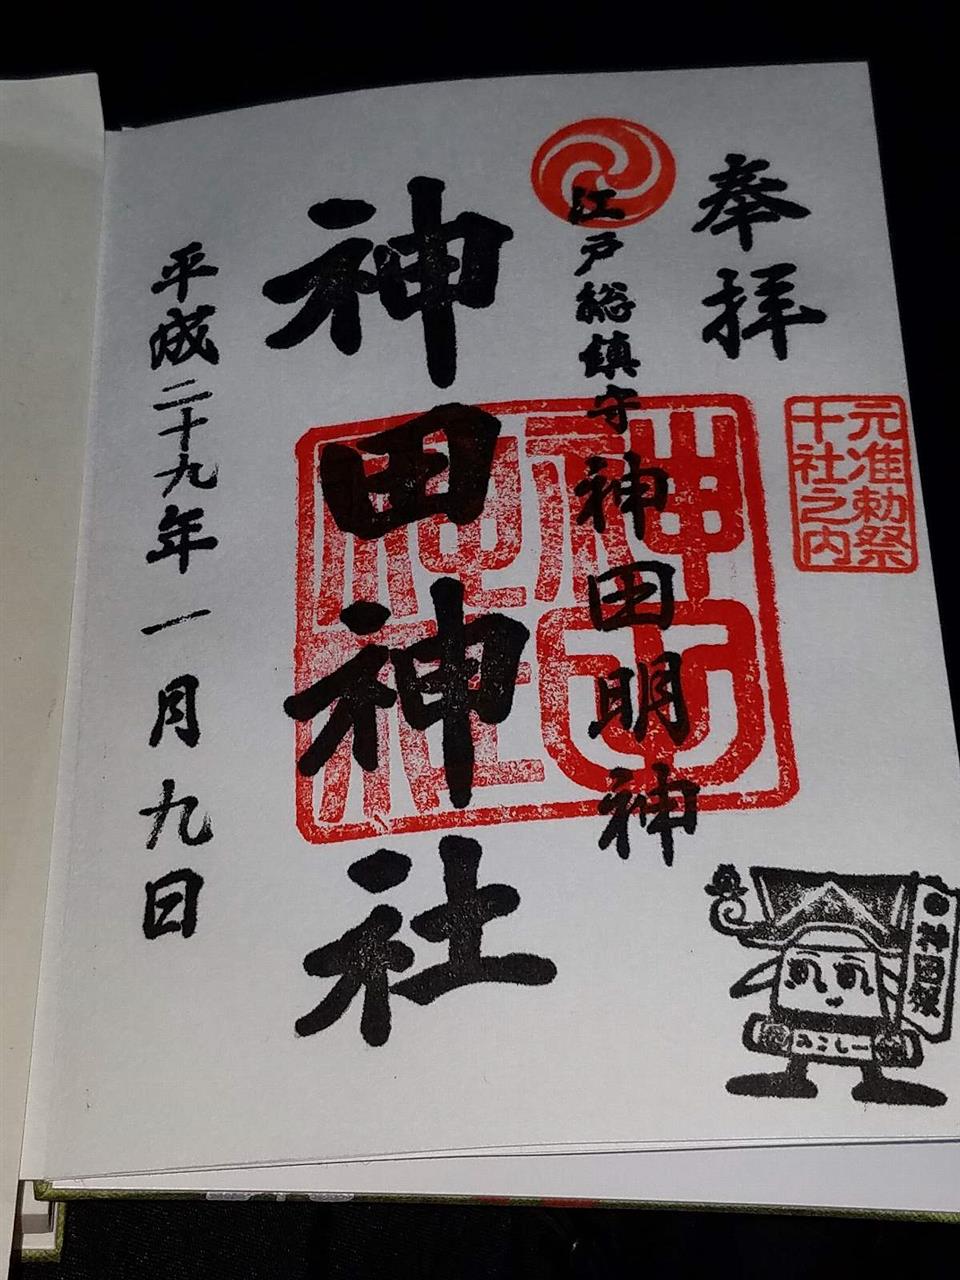 奉拝
元准勅祭
十社之内
江戸総鎮守 神田明神
神田神社
平成二十九年一月九日
みこしー